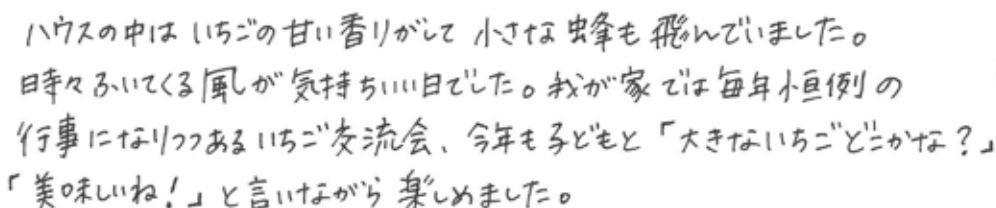 ハウスの中は いちごの甘い香りがして 小さな蜂も飛んでいました。
時々ふいてくる風が気持ちいい日でした。我が家では毎年恒例の
行事になりつつあるいちご交流会、今年も子どもと「大きないちごどこかな?」
「美味しいね!」と言いながら楽しめました。